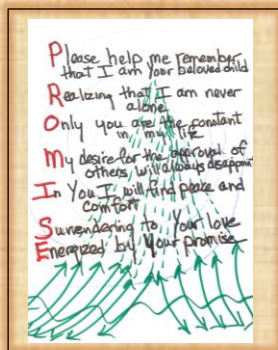 Please help me remember
that I am Your beloved child
Realizing that I am never
alone
Only you are the constant
in my life
My desire for the approval of
others, will always disappoint
In You I will find peace and
comfort
Surrendering to Your love
Energized by Your promise